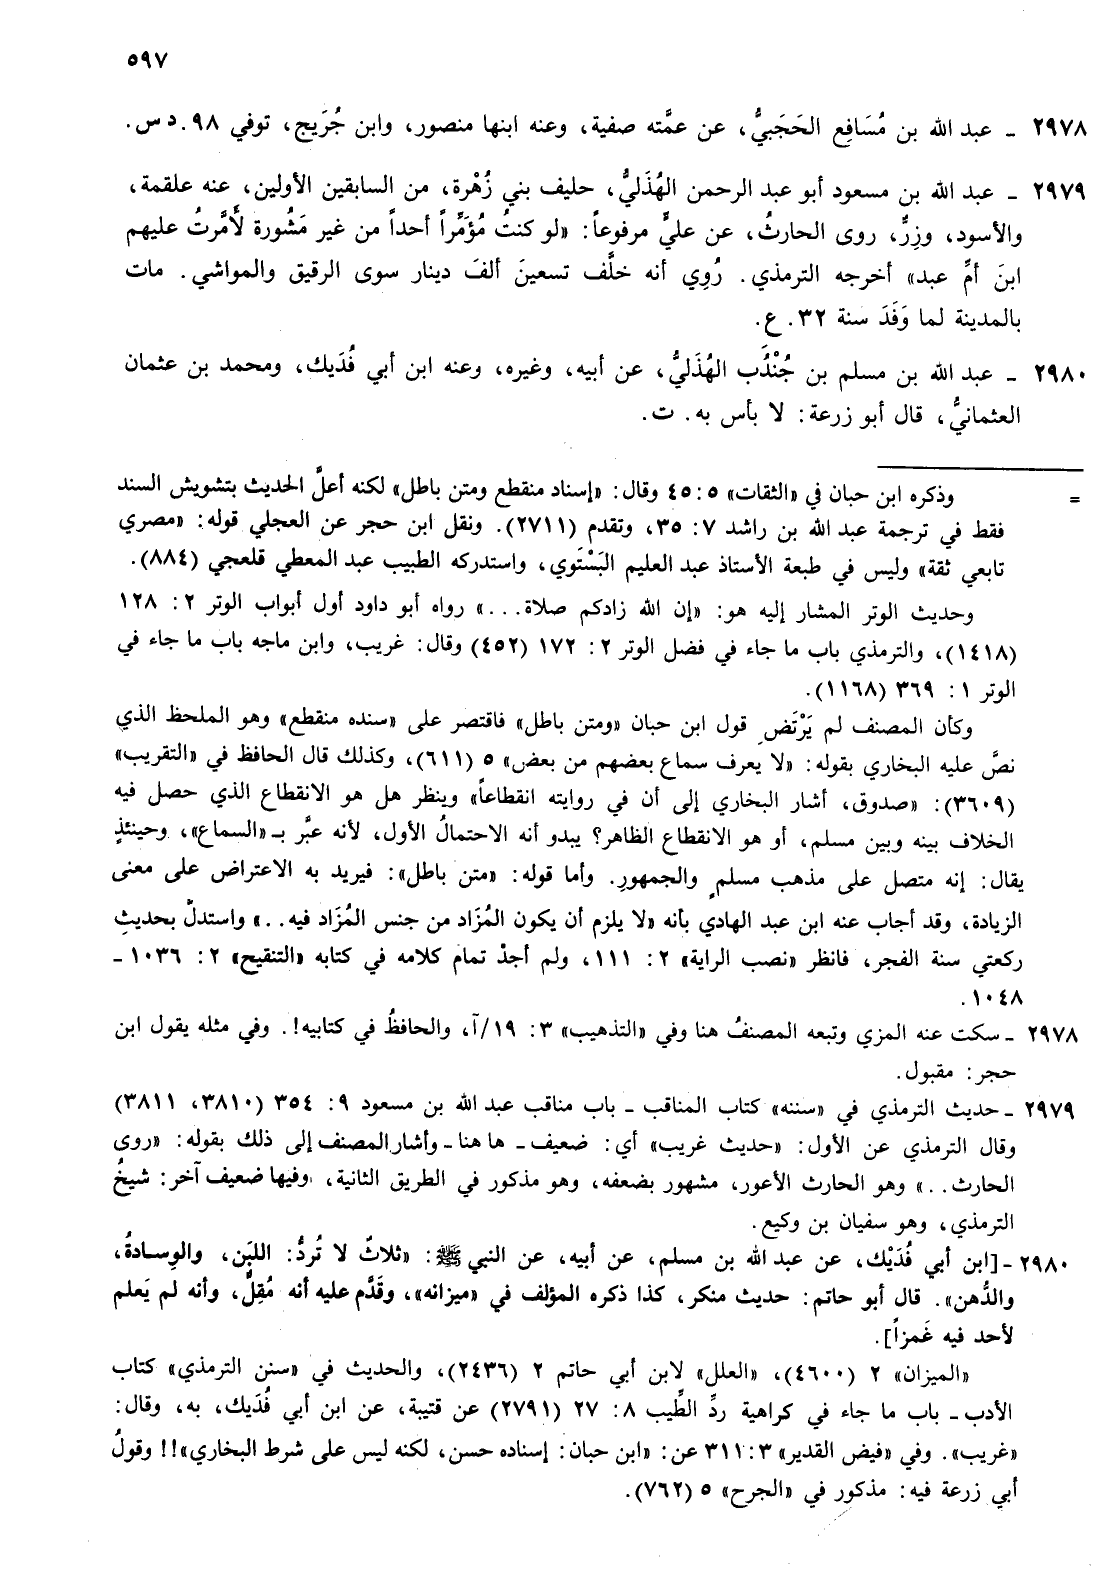 ٥٩٧
٢٩٧٨ ـ عبد الله بن مُسَافِع الحَجَبيُّ، عن عمَّته صفية، وعنه ابنها منصور، وابن جُرَيج، توفي ٩٨. د س.
٢٩٧٩ ـ عبد الله بن مسعود أبو عبد الرحمن الهُذَليُّ، حليف بني زُهْرة، من السابقين الأولين، عنه علقمة،
والأسود، وزِرٌّ، روى الحارثُ، عن عليٍّ مرفوعاً: «لو كنتُ مُؤَمِّراً أحداً من غير مَشُورة لأَمَّرتُ عليهم
ابنَ أمِّ عبد» أخرجه الترمذي. رُوِي أنه خلَّف تسعينَ ألفَ دينار سوى الرقيق والمواشي. مات
بالمدينة لما وَفَدَ سنة ٣٢. ع.
٢٩٨٠ ـ عبد الله بن مسلم بن جُنْدَُب الهُذَليُّ، عن أبيه، وغيره، وعنه ابن أبي فُدَيك، ومحمد بن عثمان
العثمانيُّ، قال أبو زرعة: لا بأس به. ت.
= وذكره ابن حبان في «الثقات» ٥: ٤٥ وقال: «إسناد منقطع ومتن باطل» لكنه أعلَّ الحديث بتشويش السند
فقط في ترجمة عبد الله بن راشد ٧: ٣٥، وتقدم (٢٧١١). ونقل ابن حجر عن العجلي قوله: «مصري
تابعي ثقة» وليس في طبعة الأستاذ عبد العليم البَسْتَوي، واستدركه الطبيب عبد المعطي قلعجي (٨٨٤).
وحديث الوتر المشار إليه هو: «إن الله زادكم صلاة...» رواه أبو داود أول أبواب الوتر ٢: ١٢٨
(١٤١٨)، والترمذي باب ما جاء في فضل الوتر ٢: ١٧٢ (٤٥٢) وقال: غريب، وابن ماجه باب ما جاء في
الوتر ١: ٣٦٩ (١١٦٨).
وكأن المصنف لم يَرْتَضِ قول ابن حبان «ومتن باطل» فاقتصر على «سنده منقطع» وهو الملحظ الذي
نصَّ عليه البخاري بقوله: «لا يعرف سماع بعضهم من بعض» ٥ (٦١١)، وكذلك قال الحافظ في «التقريب»
(٣٦٠٩): «صدوق، أشار البخاري إلى أن في روايته انقطاعاً» وينظر هل هو الانقطاع الذي حصل فيه
الخلاف بينه وبين مسلم، أو هو الانقطاع الظاهر؟ يبدو أنه الاحتمالُ الأول، لأنه عبَّر بـ«السماع»، وحينئذٍ
يقال: إنه متصل على مذهب مسلمٍ والجمهورِ. وأما قوله: «متن باطل»: فيريد به الاعتراض على معنى
الزيادة، وقد أجاب عنه ابن عبد الهادي بأنه «لا يلزم أن يكون المُزَاد من جنس المُزَاد فيه..» واستدلّ بحديثِ
ركعتي سنة الفجر، فانظر «نصب الراية» ٢: ١١١، ولم أجدْ تمام كلامه في كتابه «التنقيح» ٢: ١٠٣٦ ـ
١٠٤٨.
٢٩٧٨ ـ سكت عنه المزي وتبعه المصنفُ هنا وفي «التذهيب» ٣: ١٩/آ، والحافظُ في كتابيه!. وفي مثله يقول ابن
حجر: مقبول.
٢٩٧٩ ـ حديث الترمذي في «سننه» كتاب المناقب ـ باب مناقب عبد الله بن مسعود ٩: ٣٥٤ (٣٨١٠، ٣٨١١)
وقال الترمذي عن الأول: «حديث غريب» أي: ضعيف ـ ها هنا ـ وأشار المصنف إلى ذلك بقوله: «روى
الحارث..» وهو الحارث الأعور، مشهور بضعفه، وهو مذكور في الطريق الثانية، وفيها ضعيف آخر: شيخُ
الترمذي، وهو سفيان بن وكيع.
٢٩٨٠ ـ [ابن أبي فُدَيْك، عن عبد الله بن مسلم، عن أبيه، عن النبي ﷺ: «ثلاثٌ لا تُردُّ: اللبَن، والوِسادةُ،
والدُّهن». قال أبو حاتم: حديث منكر، كذا ذكره المؤلف في «ميزانه»، وقَدَّم عليه أنه مُقِلٌّ، وأنه لم يَعلم
لأحد فيه غَمزاً].
«الميزان» ٢ (٤٦٠٠)، «العلل» لابن أبي حاتم ٢ (٢٤٣٦)، والحديث في «سنن الترمذي» كتاب
الأدب ـ باب ما جاء في كراهية ردِّ الطِّيب ٨: ٢٧ (٢٧٩١) عن قتيبة، عن ابن أبي فُدَيك، به، وقال:
«غريب». وفي «فيض القدير» ٣: ٣١١ عن: «ابن حبان: إسناده حسن، لكنه ليس على شرط البخاري»!! وقولُ
أبي زرعة فيه: مذكور في «الجرح» ٥ (٧٦٢).